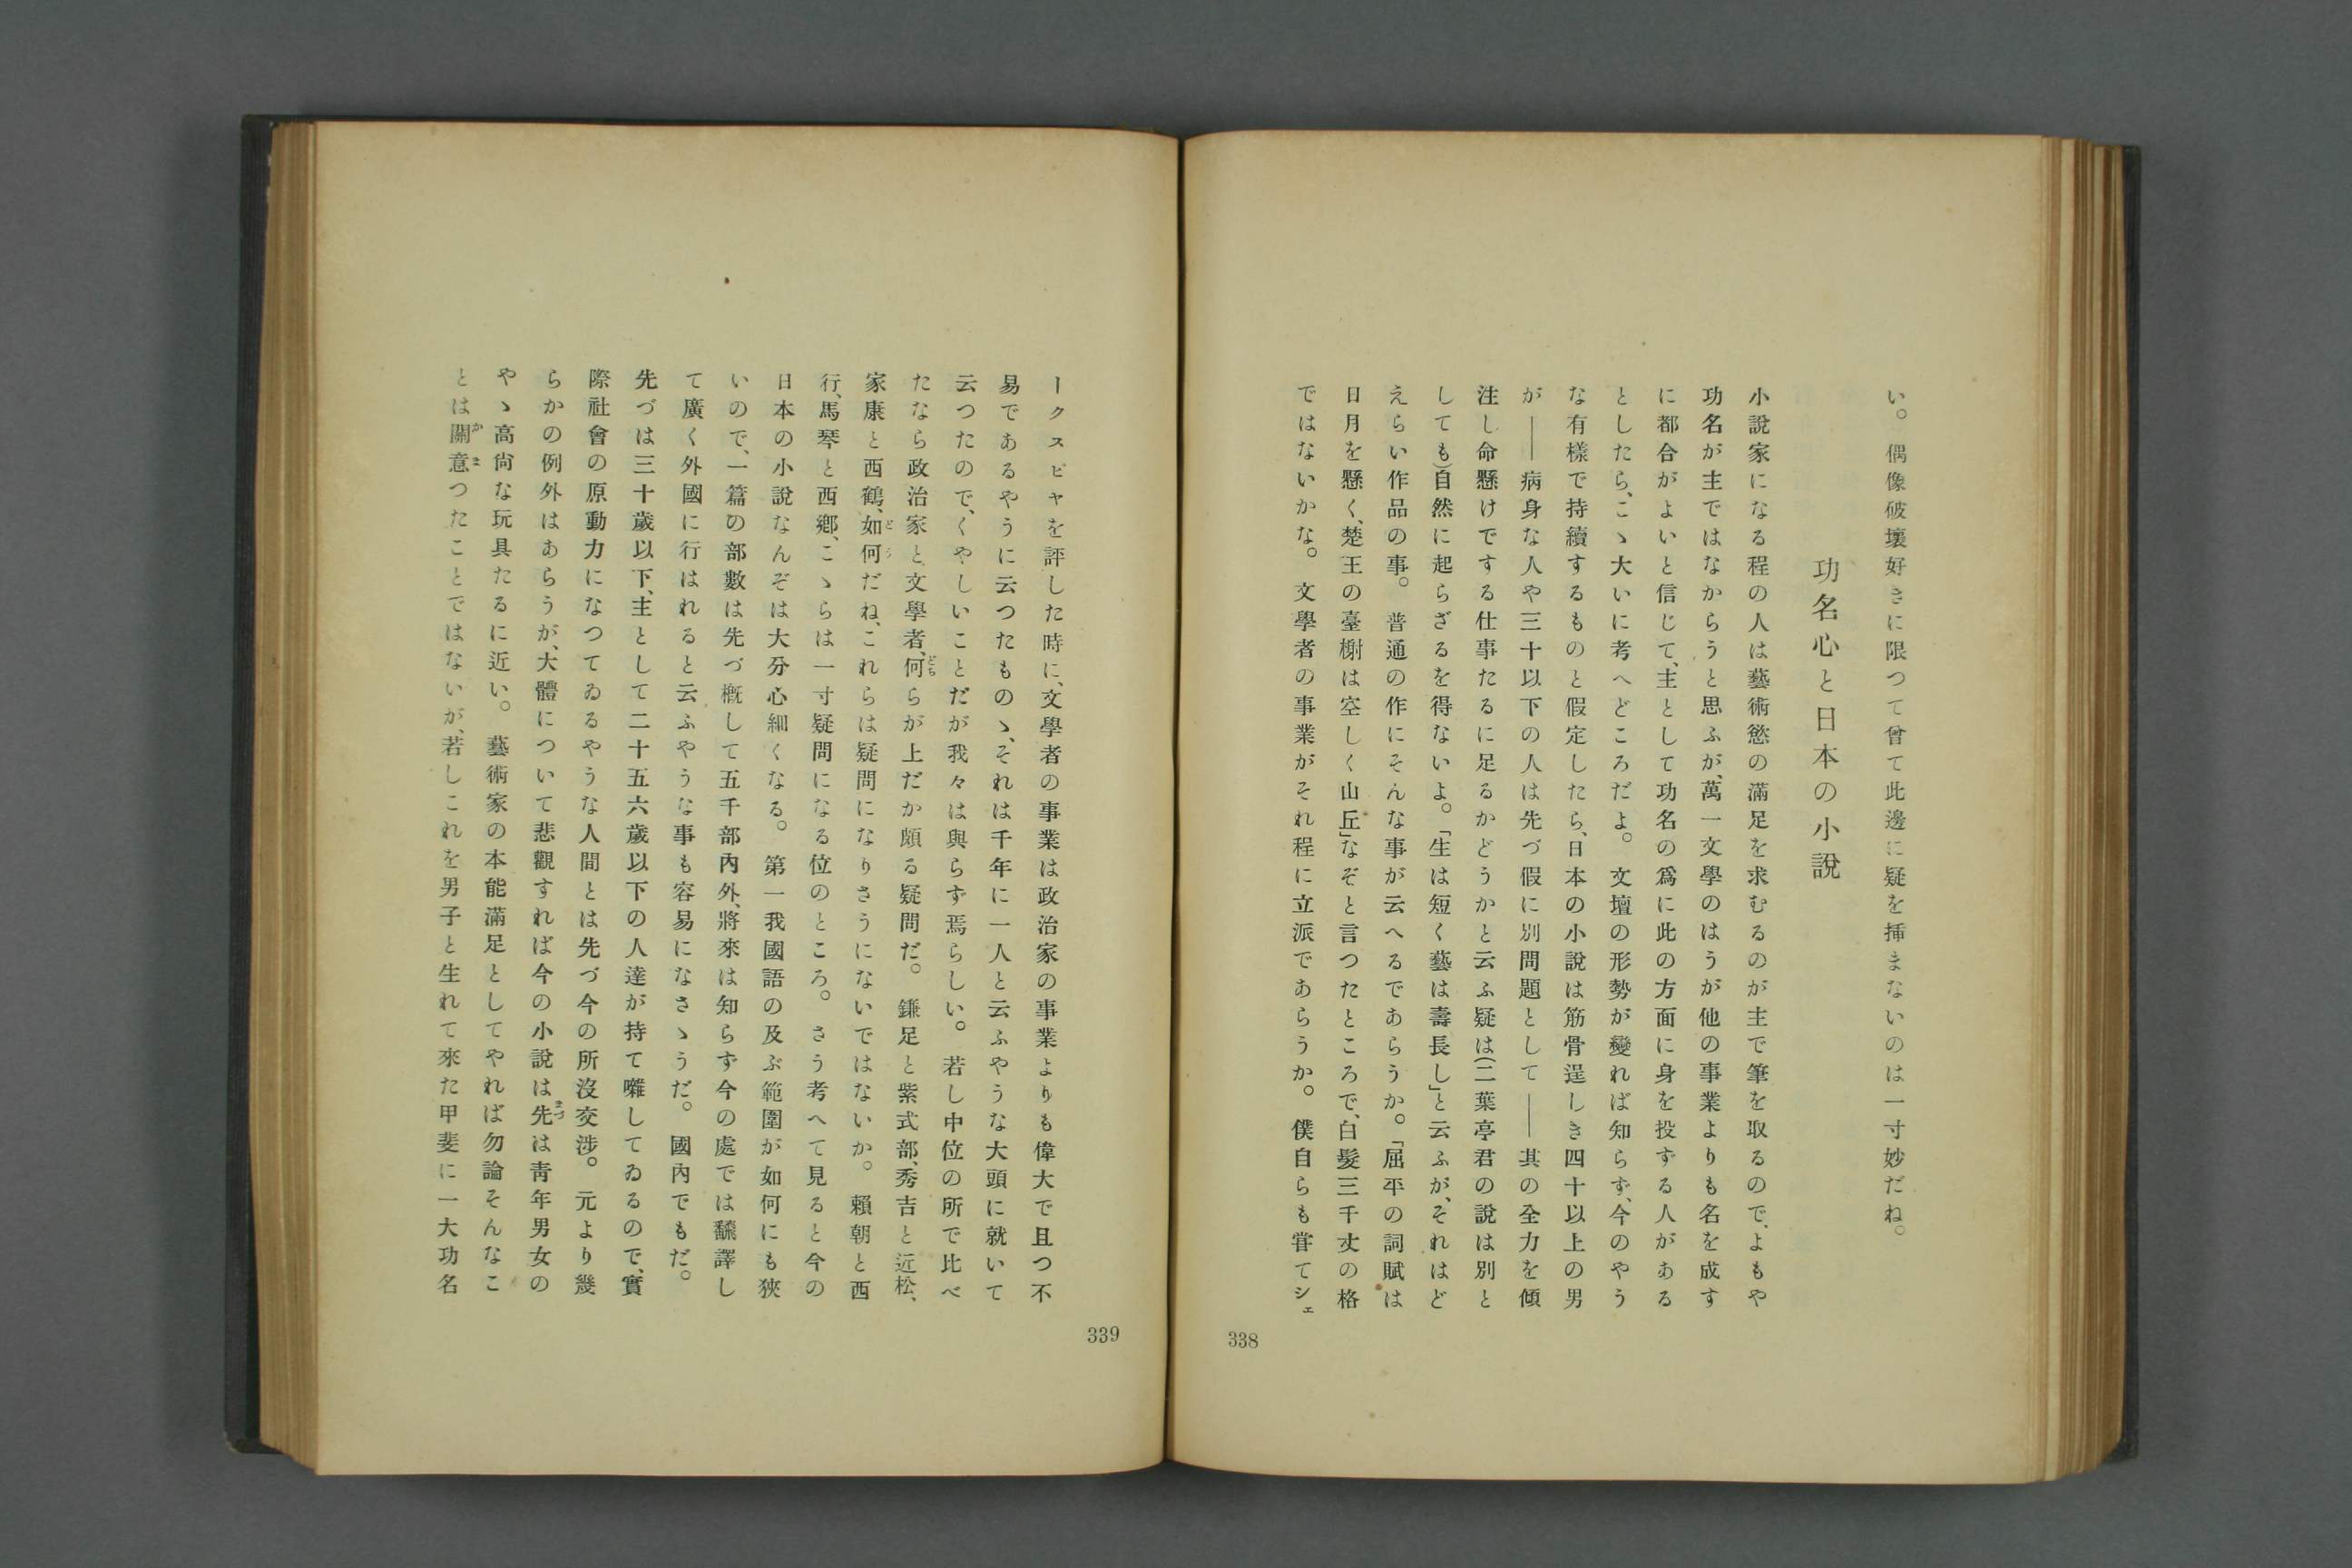 い。偶像破壞好きに限つて曾て此邊に疑を挿まないのは一寸妙だね。
功名心と日本の小說
小說家になる程の人は藝術慾の滿足を求むるのが主で筆を取るので、よもや
功名が主ではなからうと思ふが、萬一文學のはうが他の事業よりも名を成す
に都合がよいと信じて、主として功名の爲に此の方面に身を投ずる人がある
としたら、こゝ大いに考へどころだよ。文壇の形勢が變れば知らず、今のやう
な有樣で持續するものと假定したら、日本の小說は筋骨逞しき四十以上の男
が――病身な人や三十以下の人は先づ假に別問題として――其の全力を傾
注し命懸けでする仕事たるに足るかどうかと云ふ疑は(二葉亭君の說は別と
しても)自然に起らざるを得ないよ。「生は短く藝は壽長し」と云ふが、それはど
えらい作品の事。普通の作にそんな事が云へるであらうか。「屈平の詞賦は
日月を懸く、楚王の臺榭は空しく山丘」なぞと言つたところで、白髮三千丈の格
ではないかな。文學者の事業がそれ程に立派であらうか。僕自らも嘗てシェ
338
ークスピヤを評した時に、文學者の事業は政治家の事業よりも偉大で且つ不
易であるやうに云つたものゝ、それは千年に一人と云ふやうな大頭に就いて
云つたので、くやしいことだが我々は與らず焉らしい。若し中位の所で比べ
たなら政治家と文學者、何らが上だか頗る疑問だ。鎌足と紫式部、秀吉と近松、
家康と西鶴、如何だね、これらは疑問になりさうにないではないか。賴朝と西
行、馬琴と西鄕、こゝらは一寸疑問になる位のところ。さう考へて見ると今の
日本の小說なんぞは大分心細くなる。第一我國語の及ぶ範圍が如何にも狹
いので、一篇の部數は先づ槪して五千部內外、將來は知らず今の處では飜譯し
て廣く外國に行はれると云ふやうな事も容易になさゝうだ。國內でもだ。
先づは三十歲以下、主として二十五六歲以下の人達が持て囃してゐるので、實
際社會の原動力になつてゐるやうな人間とは先づ今の所沒交涉。元より幾
らかの例外はあらうが、大體について悲觀すれば今の小說は先は靑年男女の
やゝ高尙な玩具たるに近い。藝術家の本能滿足としてやれば勿論そんなこ
とは關意つたことではないが、若しこれを男子と生れて來た甲斐に一大功名
339